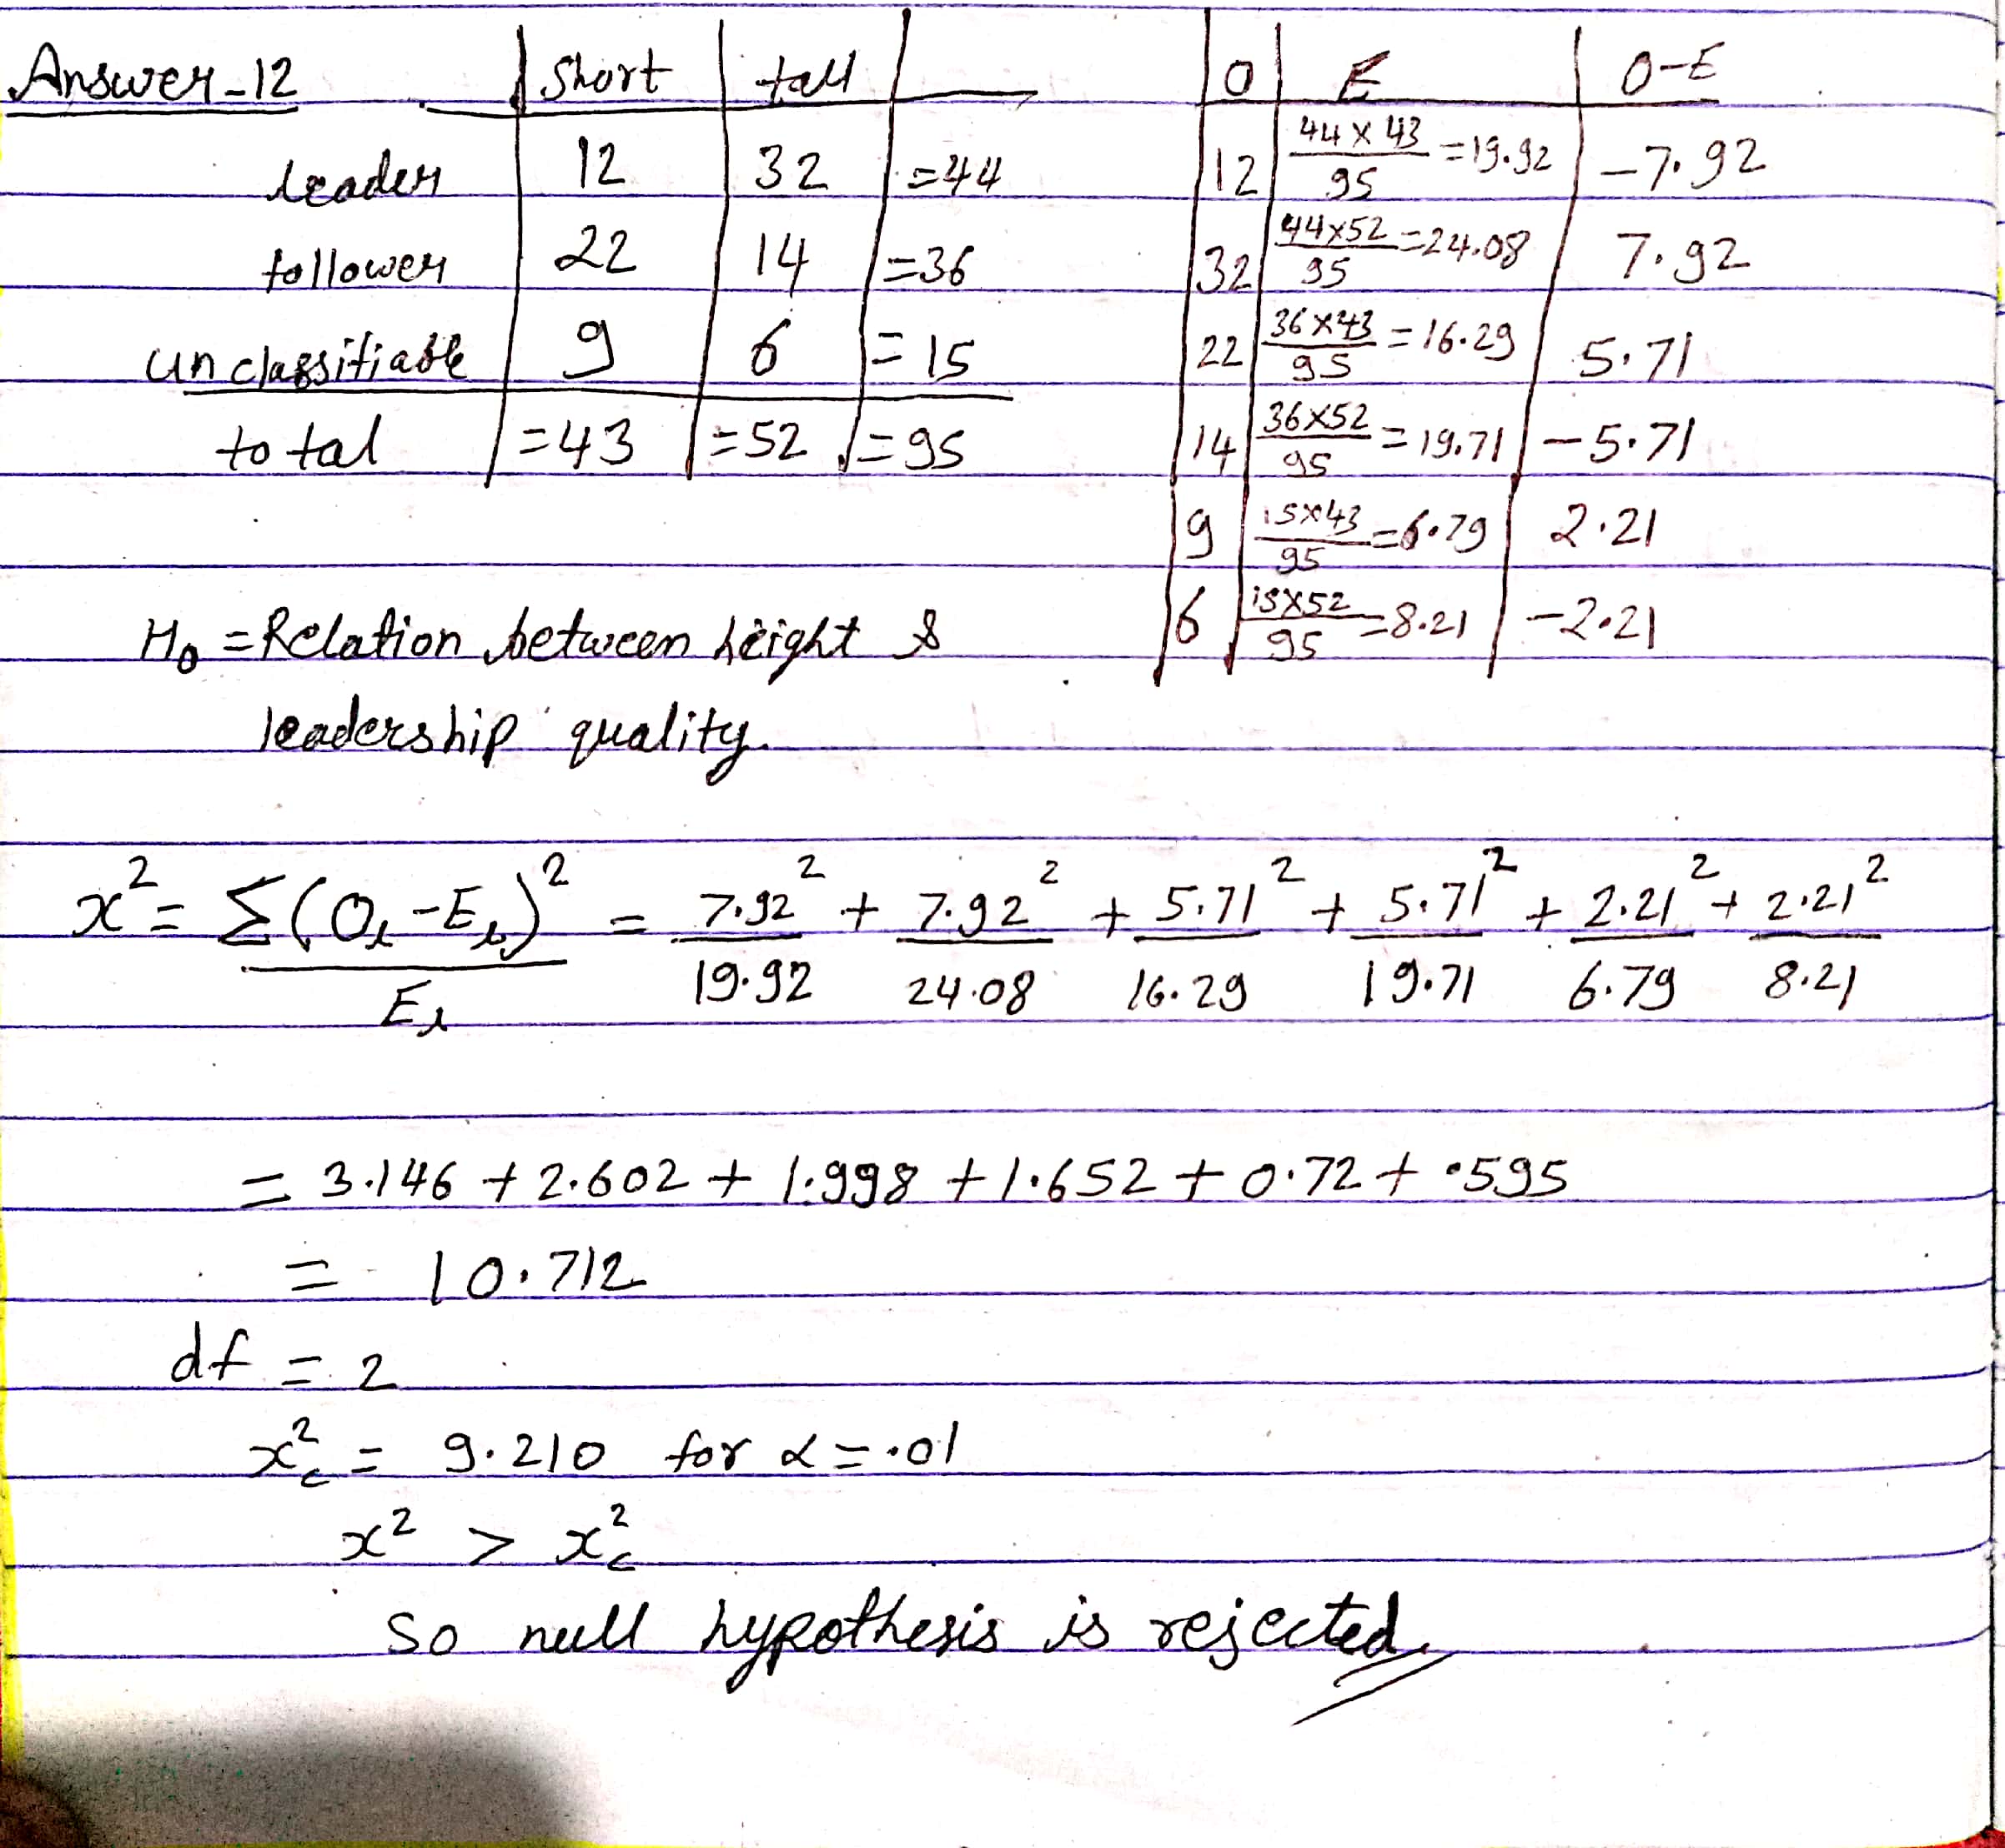 Answer-12 | Short | tall |
leader | 12 | 32 | =44
follower | 22 | 14 | =36
unclassifiable | 9 | 6 | =15
total | =43 | =52 | =95
O | E | O-E
12 | 44×43/95 =19.92 | -7.92
32 | 44×52/95 =24.08 | 7.92
22 | 36×43/95 =16.29 | 5.71
14 | 36×52/95 =19.71 | -5.71
9 | 15×43/95 =6.79 | 2.21
6 | 15×52/95 =8.21 | -2.21
H₀ = Relation between height &
leadership quality.
x² = Σ(Oᵢ-Eᵢ)²/Eᵢ = 7.92²/19.92 + 7.92²/24.08 + 5.71²/16.29 + 5.71²/19.71 + 2.21²/6.79 + 2.21²/8.21
= 3.146 + 2.602 + 1.998 + 1.652 + 0.72 + .595
= 10.712
df = 2
x²c = 9.210 for α = .01
x² > x²c
So null hypothesis is rejected.